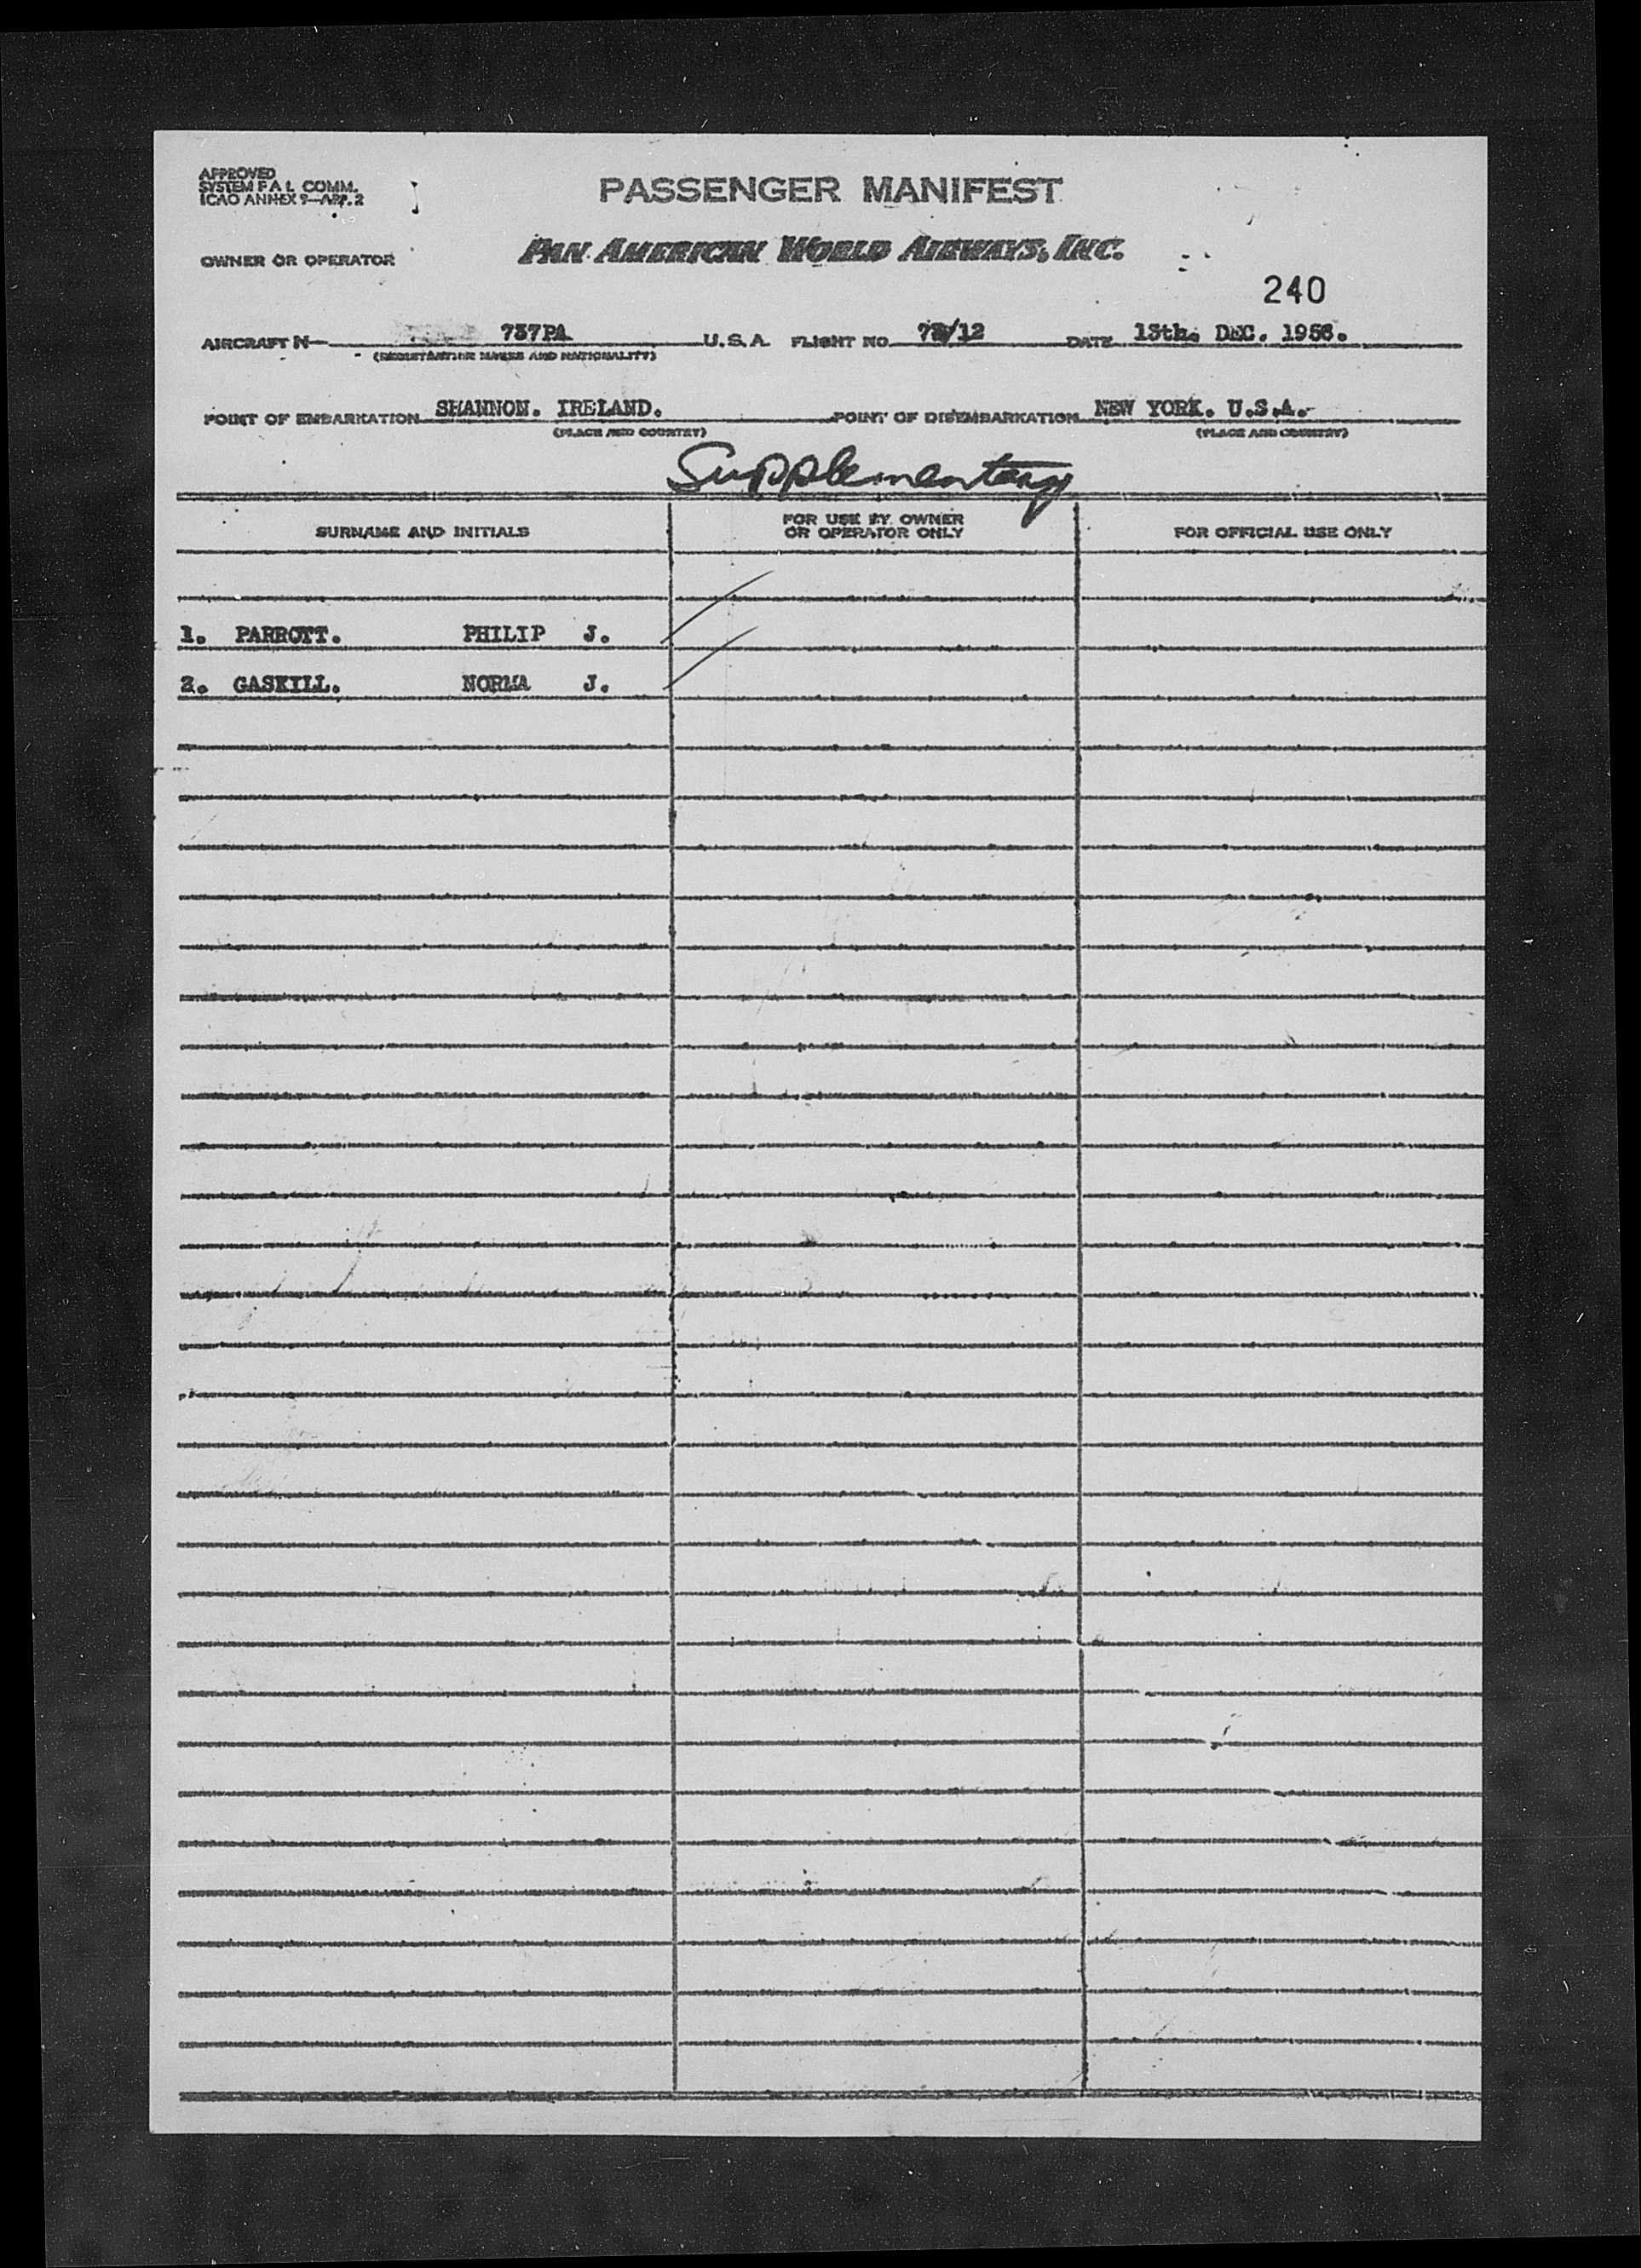 APPROVED
SYSTEM F A L COMM.
ICAO ANNEX 9—APP. 2
PASSENGER MANIFEST
OWNER OR OPERATOR
PAN AMERICAN WORLD AIRWAYS, INC.
240
AIRCRAFT N— 737PA U.S.A. FLIGHT NO. /12 DATE 13th. DEC. 1956.
(REGISTRATION MARKS AND NATIONALITY)
POINT OF EMBARKATION SHANNON. IRELAND. POINT OF DISEMBARKATION NEW YORK. U.S.A.
(PLACE AND COUNTRY) (PLACE AND COUNTRY)
Supplementary
SURNAME AND INITIALS
FOR USE BY OWNER
OR OPERATOR ONLY
FOR OFFICIAL USE ONLY
1. PARROTT. PHILIP J.
2. GASKILL. NORMA J.